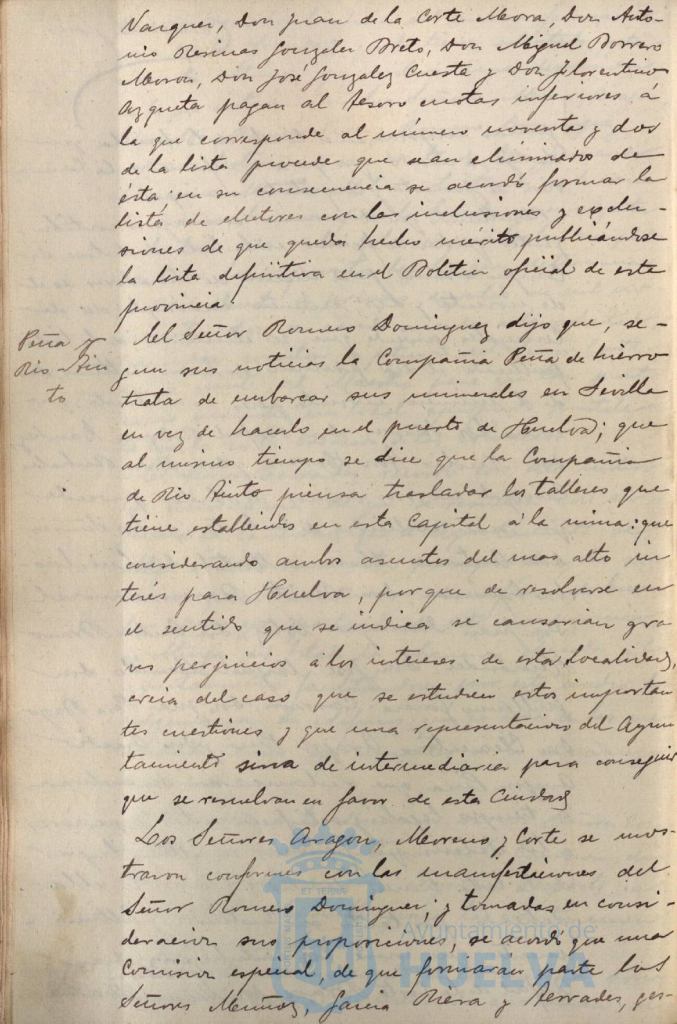 Vazquez, Don Juan de la Corte Mora, Don Anto-
nio Resinas Gonzalez Breto, Don Miguel Borrero
Moron, Don José Gonzalez Cuesta y Don Florentino
Azqueta pagan al Tesoro cuotas inferiores á
la que corresponde al número noventa y dos
de la lista procede que sean eliminados de
ésta; en su consecuencia se acordó formar la
lista de electores con las inclusiones y exclu-
siones de que queda hecho mérito, publicándose
la lista definitiva en el Boletin oficial de esta
provincia.
Peña y
Rio-Tin
to
El Señor Romero Dominguez dijo que, se-
gun sus noticias la Compañia Peña de hierro
trata de embarcar sus minerales en Sevilla
en vez de hacerlo en el puerto de Huelva; que
al mismo tiempo se dice que la Compañia
de Rio Tinto piensa trasladar los talleres que
tiene establecidos en esta Capital á la mina: que
considerando ambos asuntos del mas alto in
terés para Huelva, porque de resolverse en
el sentido que se indica se causarian gra
ves perjuicios á los intereses de esta localidad,
creia del caso que se estudien estas importan
tes cuestiones y que una representacion del Ayun
tamiento sirva de intermediaria para conseguir
que se resuelvan en favor de esta Ciudad
Los Señores Aragon, Moreno y Corte se mos-
traron conformes con las manifestaciones del
Señor Romero Dominguez; y tomadas en consi-
deracion sus proposiciones, se acordó que una
Comision especial, de que formaran parte los
Señores Muñoz, Garcia Riera y Terrades, ges-
Ayuntamiento de
HUELVA